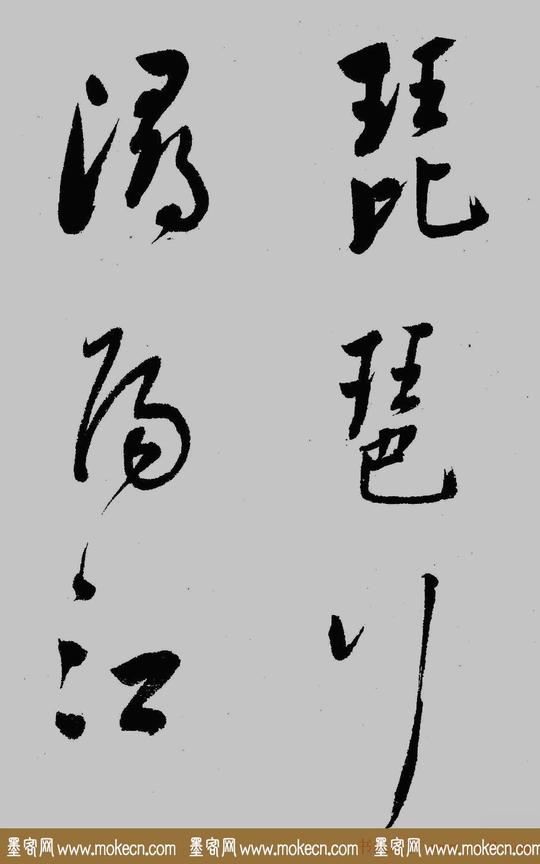 琵琶行
潯陽江
墨客网 www.mokecn.com 墨客网 www.mokecn.com 书 墨客网 www.mokecn.com